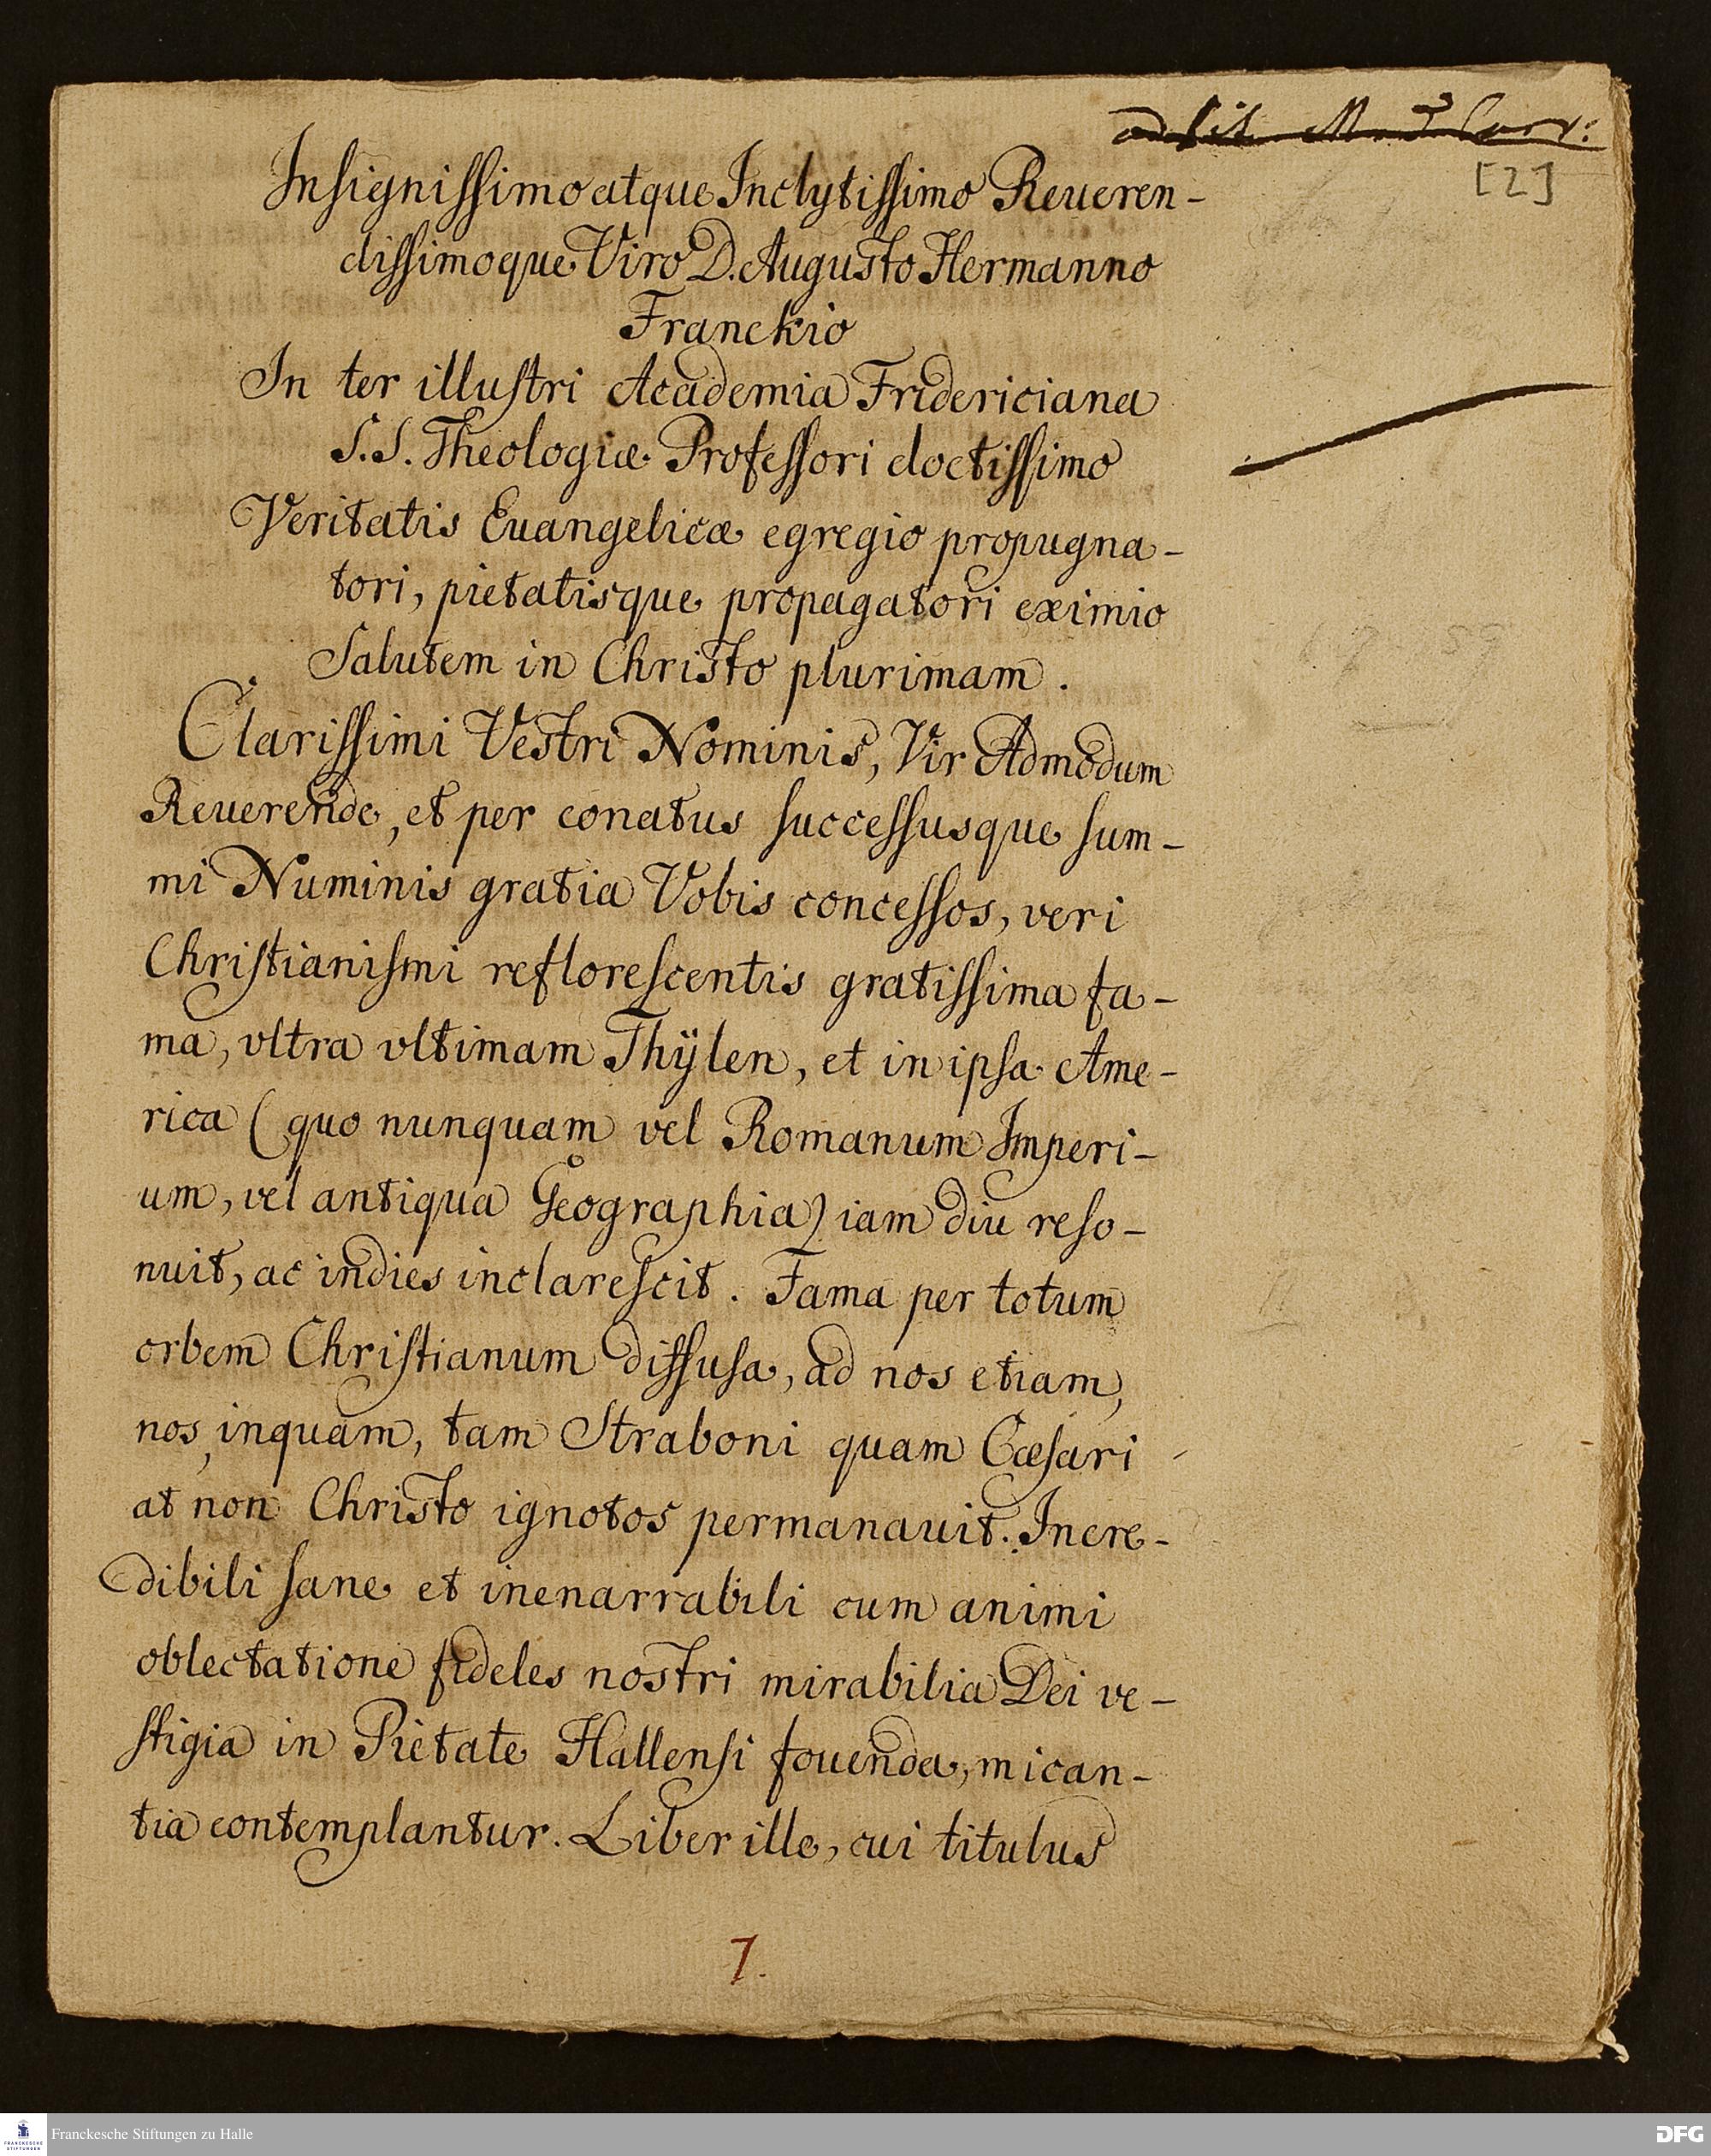 [2]
Insignissimo atque Inclytissimo Reueren-
dissimoque Viro D. Augusto Hermanno
Franckio
In ter illustri Academia Fridericiana
S.S. Theologiæ Professori doctissimo
Veritatis Euangelicæ egregio propugna-
tori, pietatisque propagatori eximio
Salutem in Christo plurimam.
Clarissimi Vestri Nominis, Vir Admodum
Reuerende, et per conatus successusque sum-
mi Numinis gratia Vobis concessos, veri
Christianismi reflorescentis gratissima fa-
ma, vltra vltimam Thÿlen, et in ipsa Ame-
rica (quo nunquam vel Romanum Imperi-
um, vel antiqua Geographia) iam diu reso-
nuit, ac indies inclarescit. Fama per totum
orbem Christianum diffusa, ad nos etiam,
nos, inquam, tam Straboni quam Cæsari
at non Christo ignotos permanauit. Incre-
dibili sane et inenarrabili cum animi
oblectatione fideles nostri mirabilia Dei ve-
stigia in Pietate Hallensi fouenda, mican-
tia contemplantur. Liber ille, cui titulus
7.
Franckesche Stiftungen zu Halle
DFG